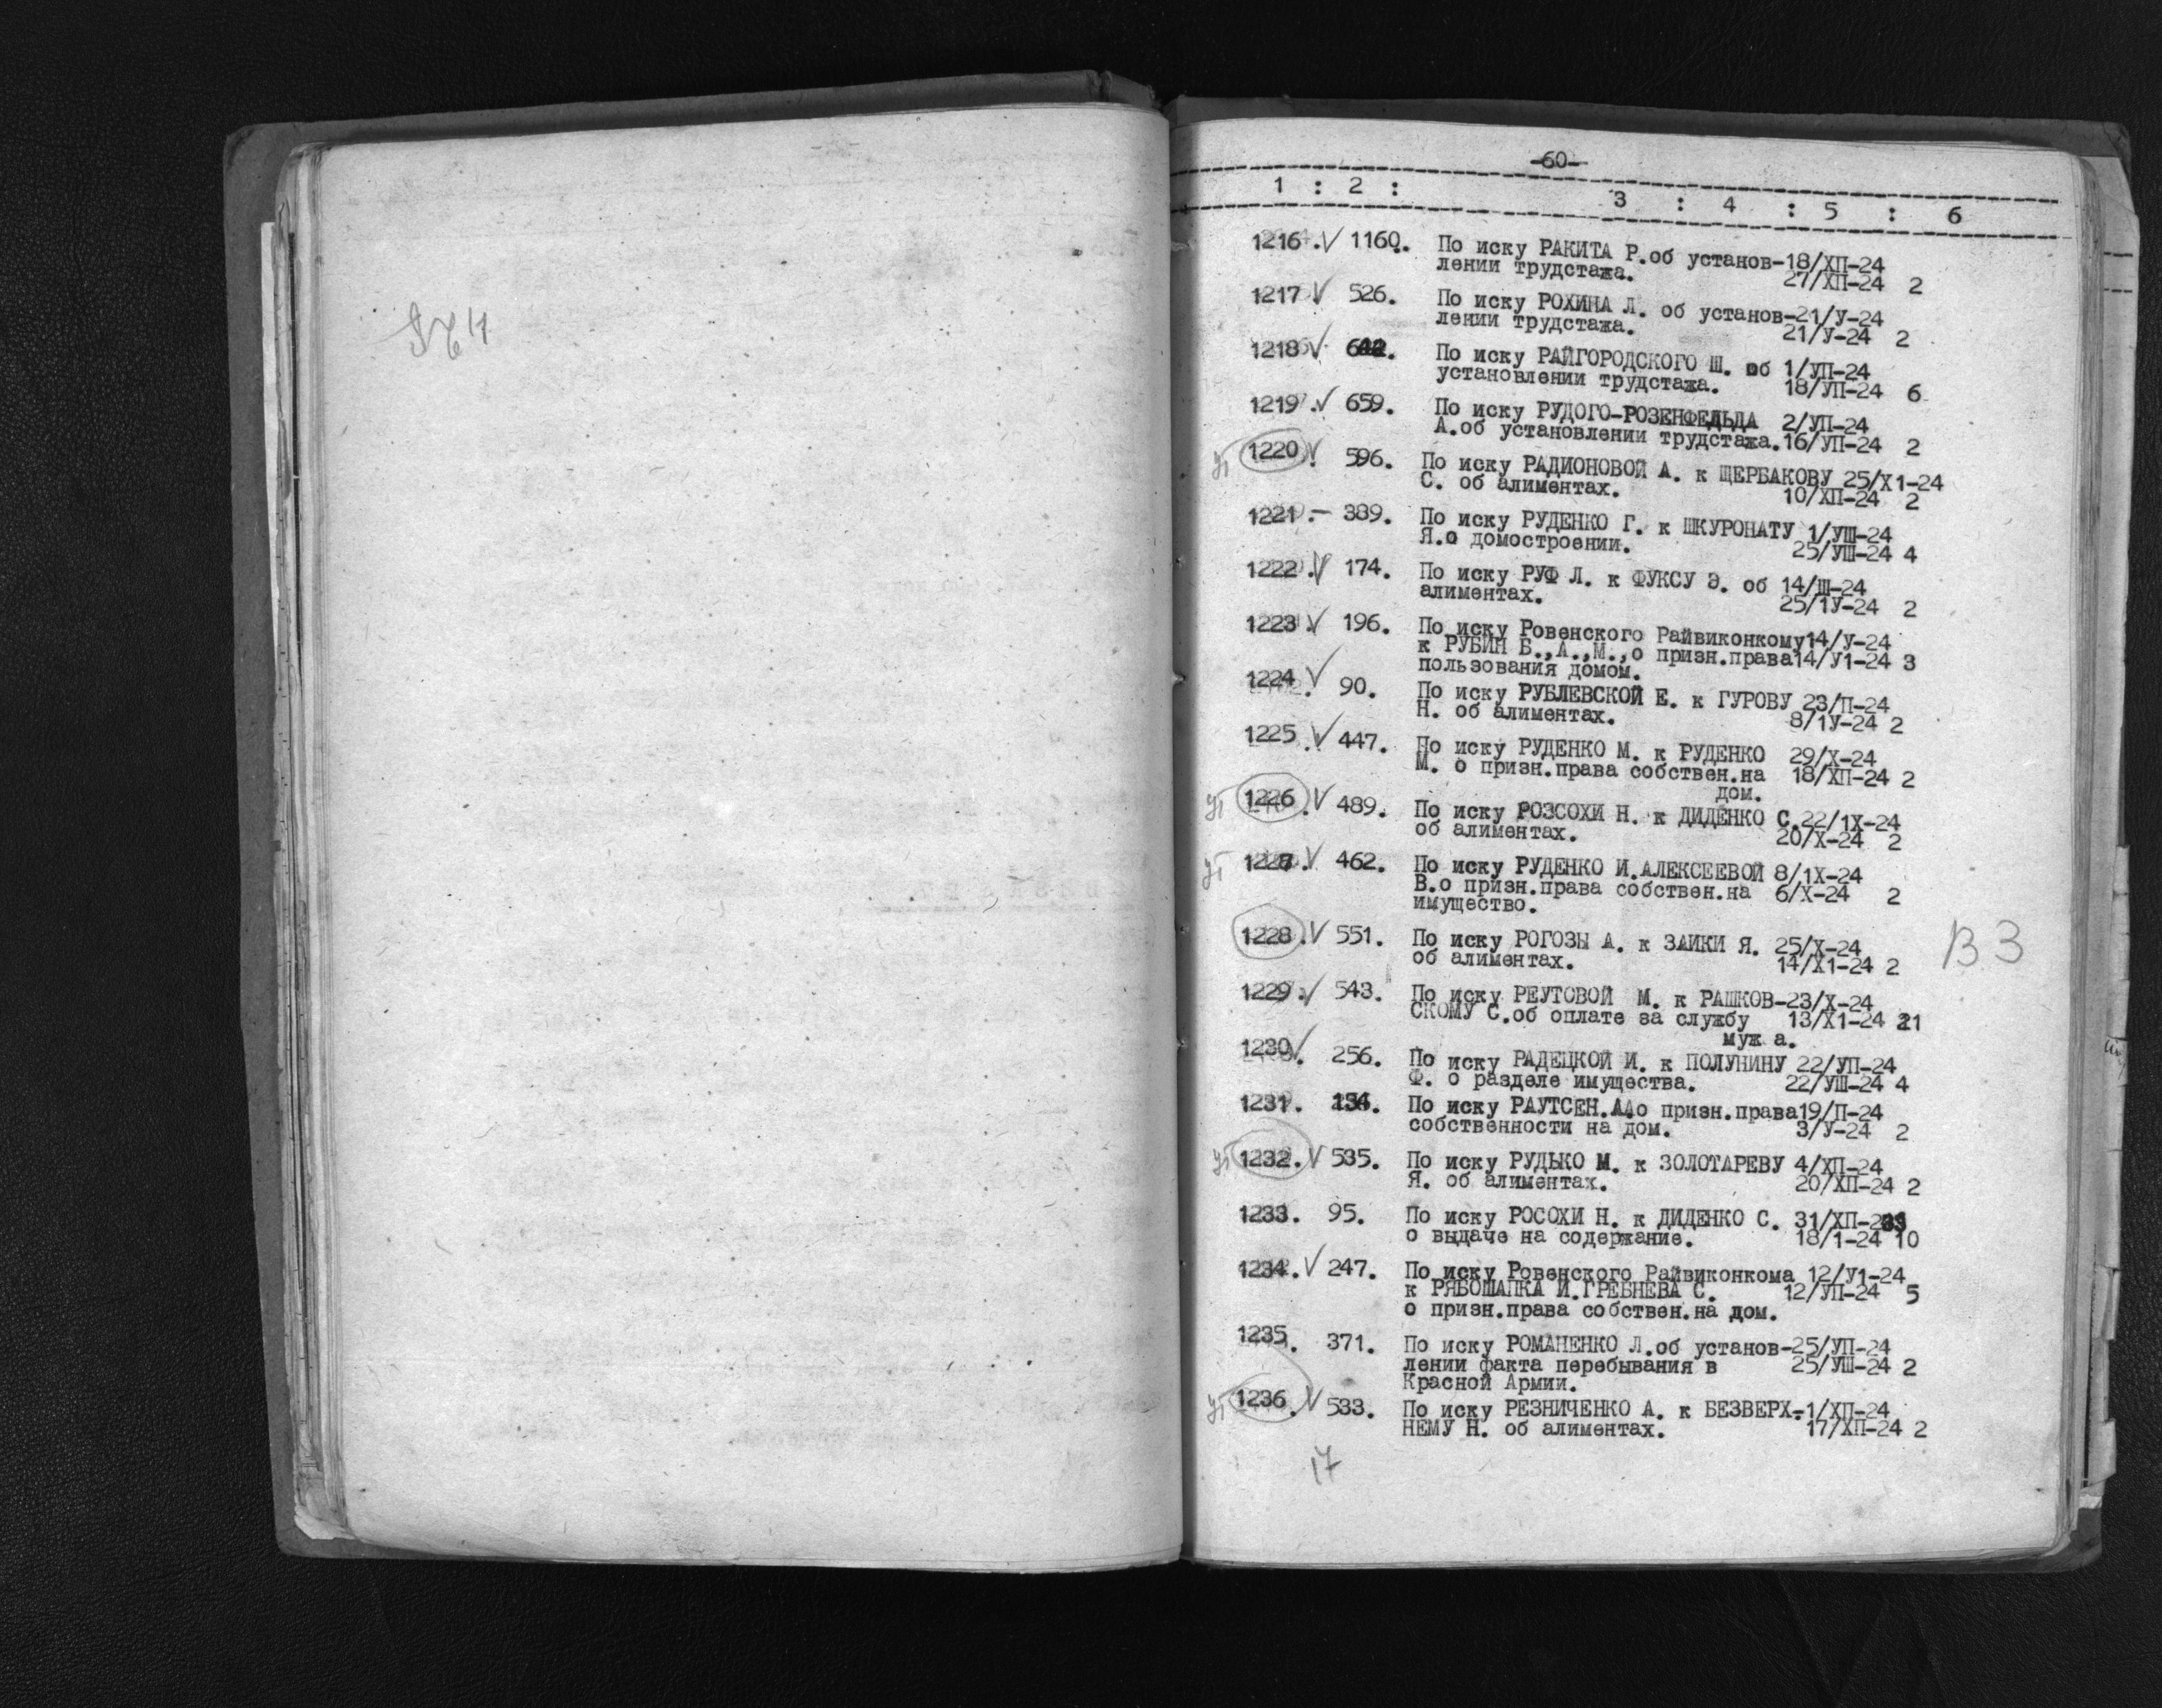 -60-
1 : 2 : 3 : 4 : 5 : 6
1216. V 1160. По иску РАКИТА Р.об установ-18/ХП-24
лении трудстажа. 27/ХП-24 2
1217 V 526. По иску РОХИНА Л. об установ-21/У-24
лении трудстажа. 21/У-24 2
1218 V По иску РАЙГОРОДСКОГО Ш. об 1/УП-24
установлении трудстажа. 18/УП-24 6
1219. V 659. По иску РУДОГО-РОЗЕНФЕЛЬДА 2/УП-24
А.об установлении трудстажа.16/УП-24 2
1220 V 596. По иску РАДИОНОВОЙ А. к ЩЕРБАКОВУ 25/Х1-24
С. об алиментах. 10/ХП-24 2
1221.- 389. По иску РУДЕНКО Г. к ШКУРОНАТУ 1/УШ-24
Я.о домостроении. 25/УШ-24 4
1222. V 174. По иску РУФ Л. к ФУКСУ Э. об 14/Ш-24
алиментах. 25/1У-24 2
1223 V 196. По иску Ровенского Райвиконкому14/У-24
к РУБИН Б.,А.,М.,о призн.права14/У1-24 3
пользования домом.
1224. V 90. По иску РУБЛЕВСКОЙ Е. к ГУРОВУ 23/П-24
Н. об алиментах. 8/1У-24 2
1225. V 447. По иску РУДЕНКО М. к РУДЕНКО 29/Х-24
М. о призн.права собствен.на 18/ХП-24 2
дом.
1226. V 489. По иску РОЗСОХИ Н. к ДИДЕНКО С.22/1Х-24
об алиментах. 20/Х-24 2
1227. V 462. По иску РУДЕНКО И.АЛЕКСЕЕВОЙ 8/1Х-24
В.о призн.права собствен.на 6/Х-24 2
имущество.
1228. V 551. По иску РОГОЗЫ А. к ЗАИКИ Я. 25/Х-24
об алиментах. 14/Х1-24 2
В 3
1229. V 543. По иску РЕУТОВОЙ М. к РАШКОВ-23/Х-24
СКОМУ С.об оплате за службу 13/Х1-24 21
муж а.
1230. V 256. По иску РАДЕЦКОЙ И. к ПОЛУНИНУ 22/УП-24
Ф. о разделе имущества. 22/УШ-24 4
1231. По иску РАУТСЕН.А.о призн.права19/П-24
собственности на дом. 3/У-24 2
1232. V 535. По иску РУДЬКО М. к ЗОЛОТАРЕВУ 4/ХП-24
Я. об алиментах. 20/ХП-24 2
1233. 95. По иску РОСОХИ Н. к ДИДЕНКО С. 31/ХП-23
о выдаче на содержание. 18/1-24 10
1234. V 247. По иску Ровенского Райвиконкома 12/У1-24
к РЯБОШАПКА И.ГРЕБНЕВА С. 12/УП-24 5
о призн.права собствен.на дом.
1235. 371. По иску РОМАНЕНКО Л.об установ-25/УП-24
лении факта перебывания в 25/УШ-24 2
Красной Армии.
1236. V 533. По иску РЕЗНИЧЕНКО А. к БЕЗВЕРХ-1/ХП-24
НЕМУ Н. об алиментах. 17/ХП-24 2
17